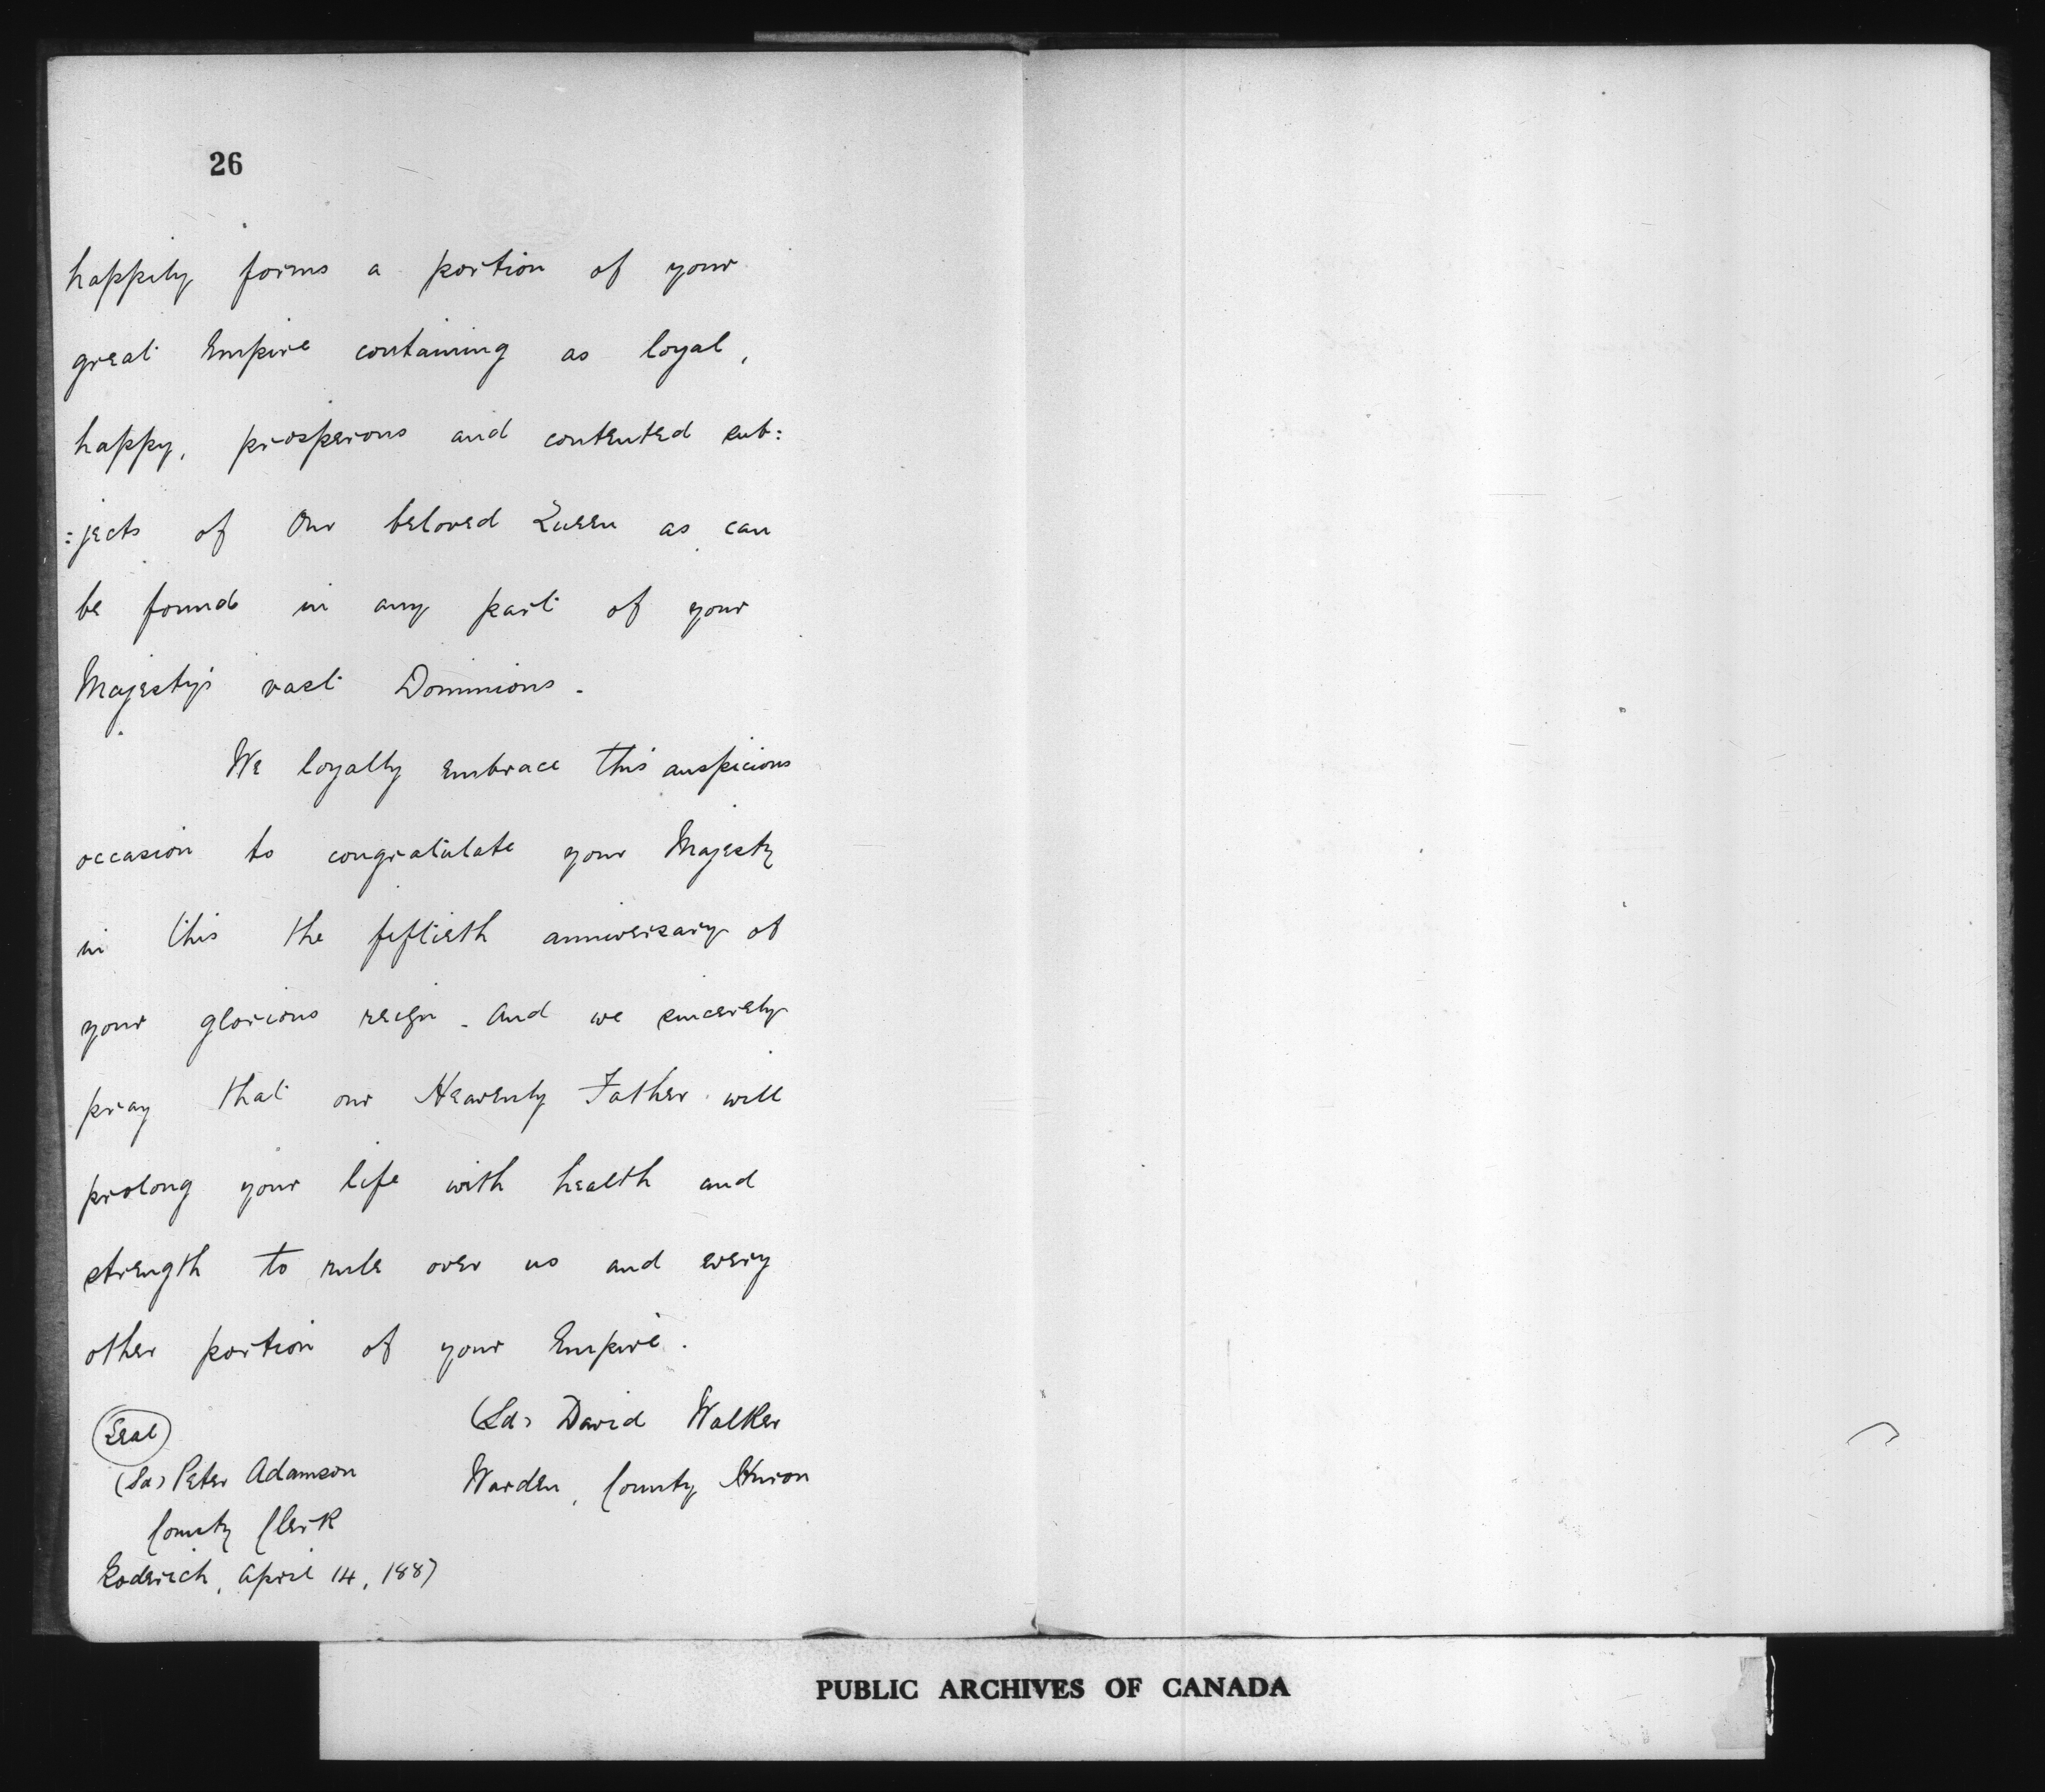 26
happily forms a portion of your
great Empire containing as loyal,
happy, prosperous and contented sub:
:jects of Our beloved Queen as can
be found in any part of your
Majesty's vast Dominions.
We loyally embrace this auspicious
occasion to congratulate your Majesty
in this the fiftieth anniversary of
your glorious reign. And we sincerely
pray that our Heavenly Father will
prolong your life with health and
strength to rule over us and every
other portion of your Empire.
Seal
(Sd) David Walker
Warden, County Huron
(Sd) Peter Adamson
County Clerk
Goderich, April 14, 1887
PUBLIC ARCHIVES OF CANADA